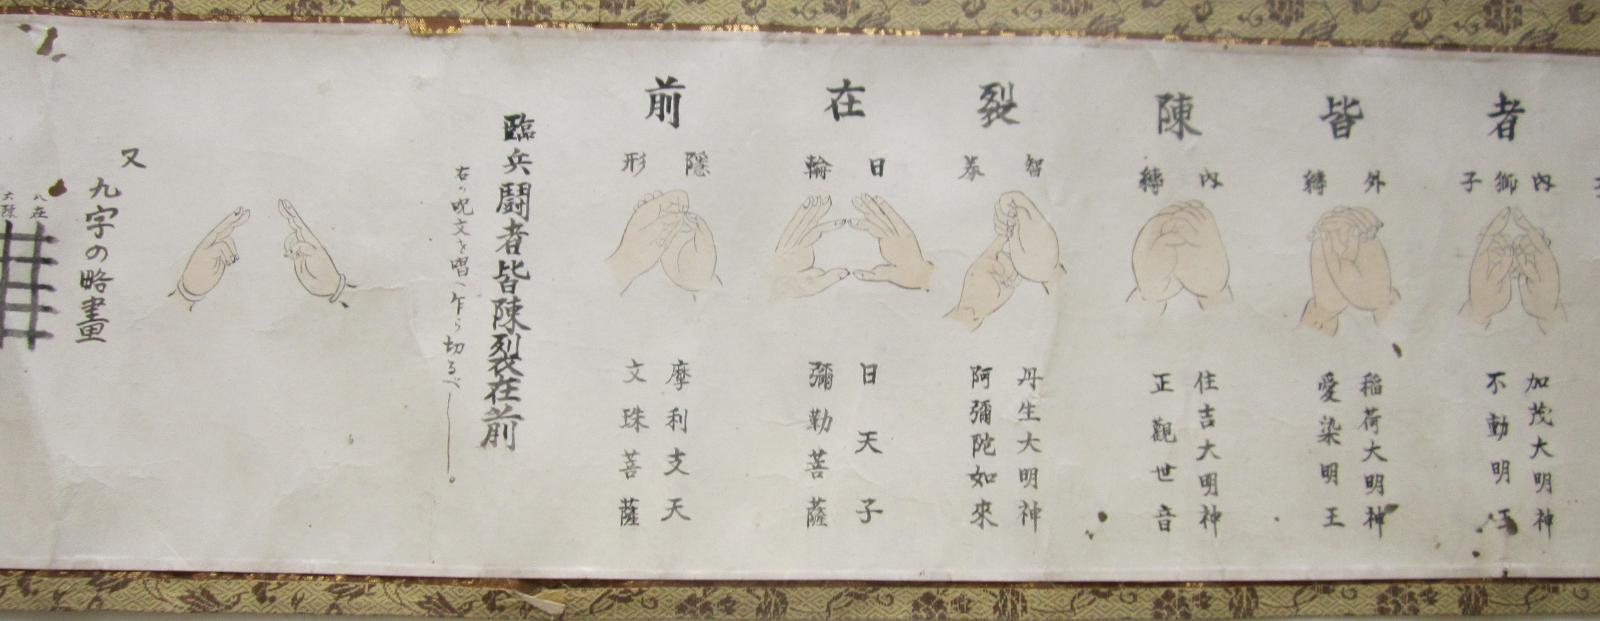 者
内獅子
加茂大明神
不動明王
皆
外縛
稲荷大明神
愛染明王
陳
内縛
住吉大明神
正観世音
裂
智拳
丹生大明神
阿彌陀如來
在
日輪
日天子
彌勒菩薩
前
隠形
摩利支天
文珠菩薩
臨兵闘者皆陳裂在前
右ノ呪文を唱へ乍ら切るべし。
又
九字の略畫
八在
六陳